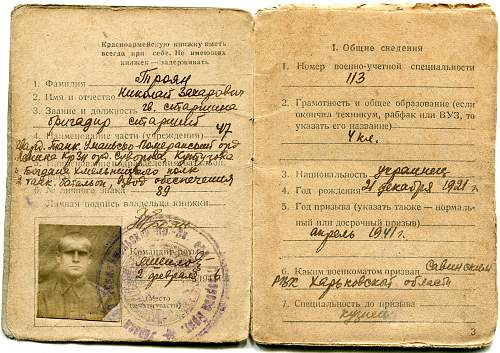 Красноармейскую книжку иметь
всегда при себе. Не имеющих
книжек — задерживать.
1. Фамилия Троян
2. Имя и отчество Николай Захарович
3. Звание и должность гв. старшина
бригадир старший
4. Наименование части (учреждения) 47
Гвард. Танк. Уманьско-Померанский орд.
Ленина Кр/Зн орд. Суворова, Кутузова
и Богдана Хмельницкого полк
2 танк. батальон, взвод обеспечения
6. № личного знака 99
Личная подпись владельца книжки
Командир
2 февраля
(Место
печати части)
I. Общие сведения
1. Номер военно-учетной специальности
113
2. Грамотность и общее образование (если
окончил техникум, рабфак или ВУЗ, то
указать его название)
4 кл.
3. Национальность украинец
4. Год рождения 21 декабря 1921 г.
5. Год призыва (указать также — нормаль-
ный или досрочный призыв)
апрель 1941 г.
6. Каким военкоматом призван Савинским
РВК Харьковской области
7. Специальность до призыва
кузнец
3